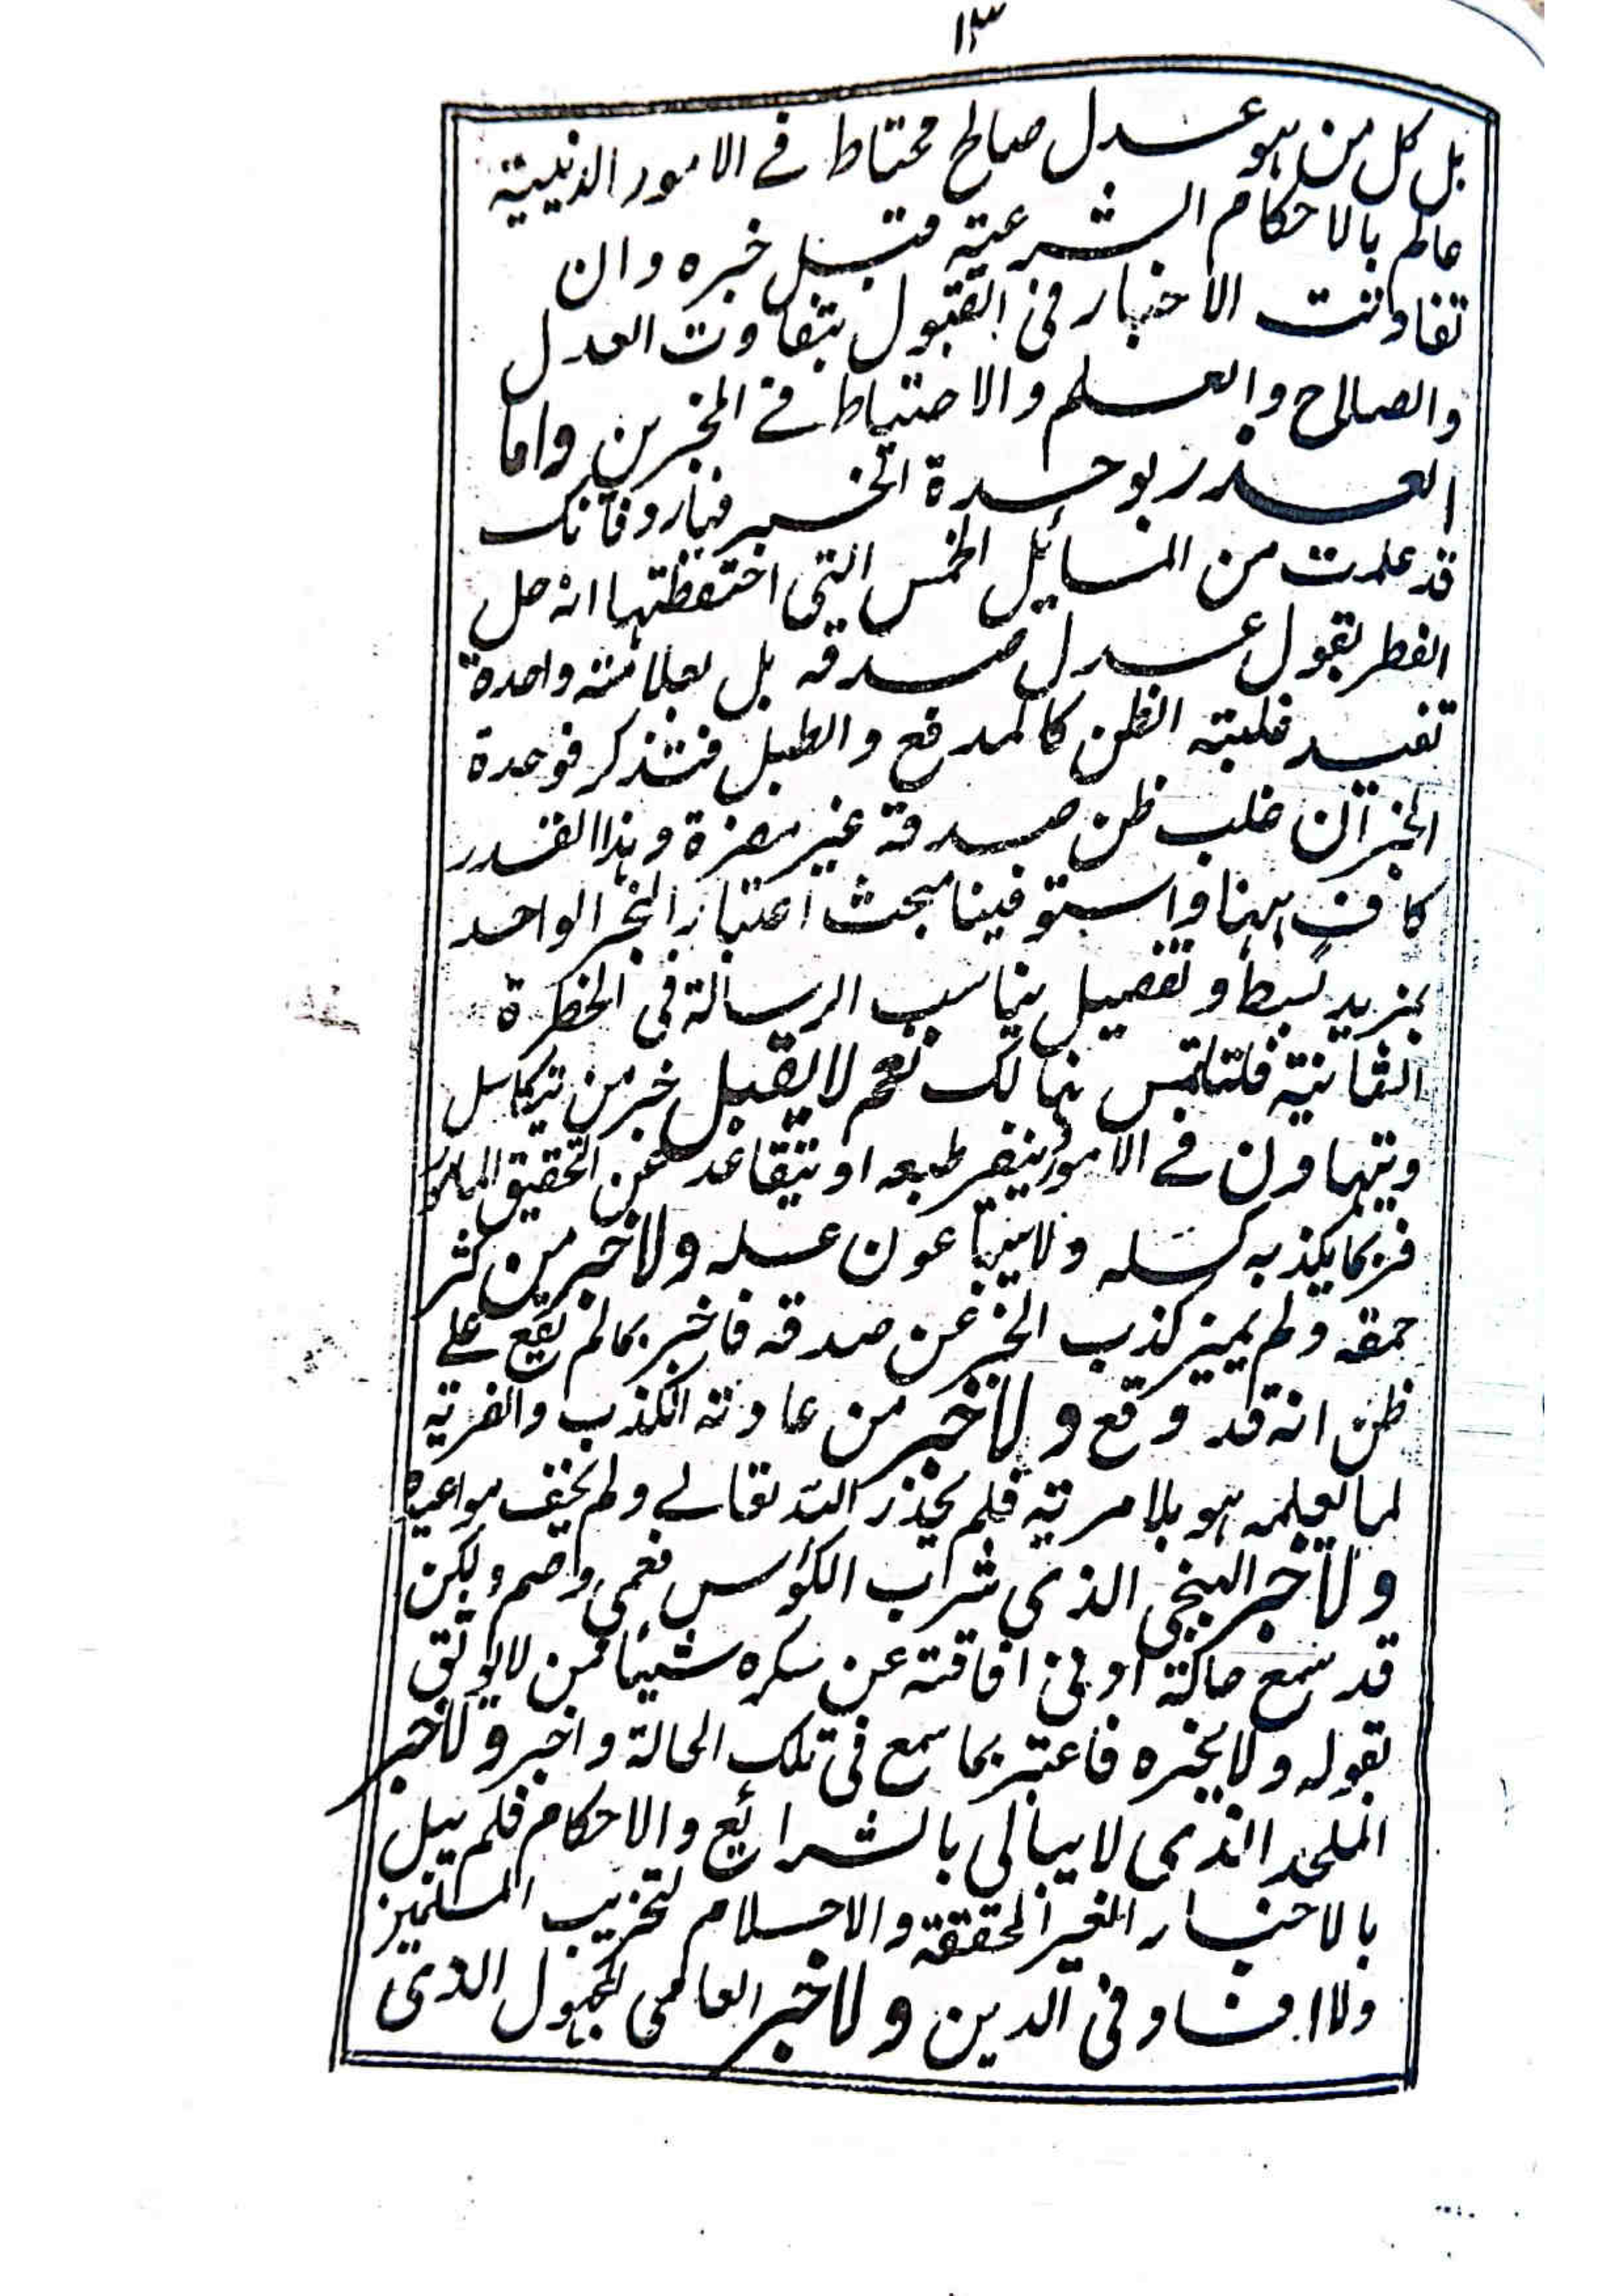 ١٣
بل كل من هو عدل صالح محتاط فى الامور الدينية
عالم بالاحكام الشرعية قبل خبره وان
تفاوتت الاخبار فى القبول بتفاوت العدل
والصلاح والعلم والاحتياط فى المخبرين واما
العذر بوحدة المخبر فبارد فانك
قد علمت من المسائل الخمس التى احتفظتها انه حل
الفطر بقول عدل صدقه بل بعلامة واحدة
تفيد غلبة الظن كالمدفع والطبل فتذكر فوحدة
المخبر ان غلب ظن صدقه غير مضرة وهذا القدر
كاف ههنا واستوفينا مبحث اعتبار الخبر الواحد
بمزيد بسط وتفصيل يناسب الرسالة فى الخطرة
الثانية فلتلتمس هنالك نعم لا يقبل خبر من يتكاسل
ويتهاون فى الامور ينفر طبعه او يتقاعد عن التحقيق المامور
فربما يكذبه كسله ولا خبر من كثر
حمقه ولم يميز كذب الخبر عن صدقه فاخبر بما لم يقع على
ظن انه قد وقع ولا خبر من عادته الكذب والفرية
لما يعلمه هو بلا مرية فلم يحذر الله تعالى ولم يخف مواعيده
ولا خبر البنجى الذى شراب الكؤس فعمى واصم ولكن
قد سمع حالته او فى افاقته عن سكره شيئا ممن لا يوثق
بقوله ولا بخبره فاعتبر بما سمع فى تلك الحالة واخبر ولا خبر
الملحد الذى لا يبالى بالشرائع والاحكام فلم يبل
بالاخبار الغير المحققة والاحلام لتخريب المسلمين
ولا افساد فى الدين ولا خبر العامى المجهول الذى